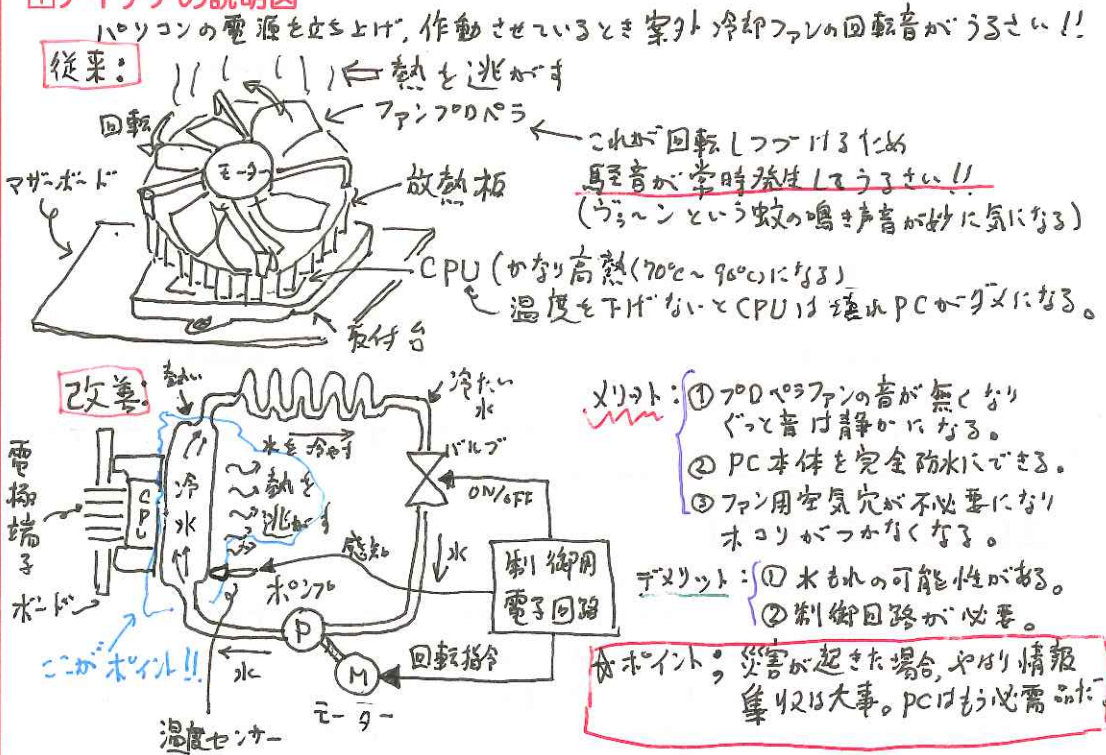 アイデアの説明図
パソコンの電源を立ち上げ, 作動させているとき案外冷却ファンの回転音がうるさい!!
従来:
熱を逃がす
回転
ファンプロペラ
モーター
マザーボード
放熱板
これが回転しつづけるため
騒音が常時発生してうるさい!!
(ヴぅ〜ンという蚊の鳴き声音が妙に気になる)
CPU (かなり高熱(70℃〜90℃)になる)
温度を下げないとCPUは壊れPCがダメになる。
取付台
改善:
熱い
冷たい
水
水を冷やす
バルブ
電極端子
CPU
冷水
熱を
逃がす
ON/OFF
感知
水
制御用
電子回路
ボード
ポンプ
P
ここがポイント!!
水
M
回転指令
モーター
温度センサー
メリット:① プロペラファンの音が無くなり
ぐっと音は静かになる。
② PC本体を完全防水にできる。
③ ファン用空気穴が不必要になり
ホコリがつかなくなる。
デメリット:① 水もれの可能性がある。
② 制御回路が必要。
☆ポイント; 災害が起きた場合, やはり情報
集収は大事。PCはもう必需品だ。